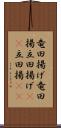 竜田揚げ竜田
揚立田揚げ
立田揚